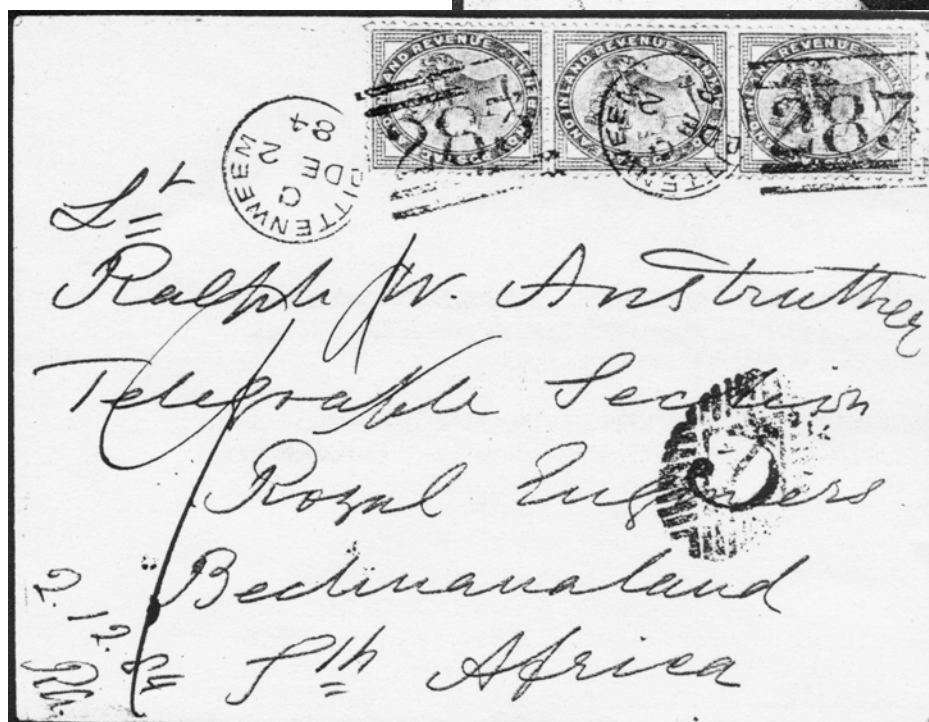 AND INLAND REVENUE AND INLAND REVENUE AND INLAND REVENUE
287
PITTENWEEM
C
DE 2
84
Lt
Ralph W. Anstruther
Telegraph Section
Royal Engineers
Bechuanaland
Sth Africa
2.12.84